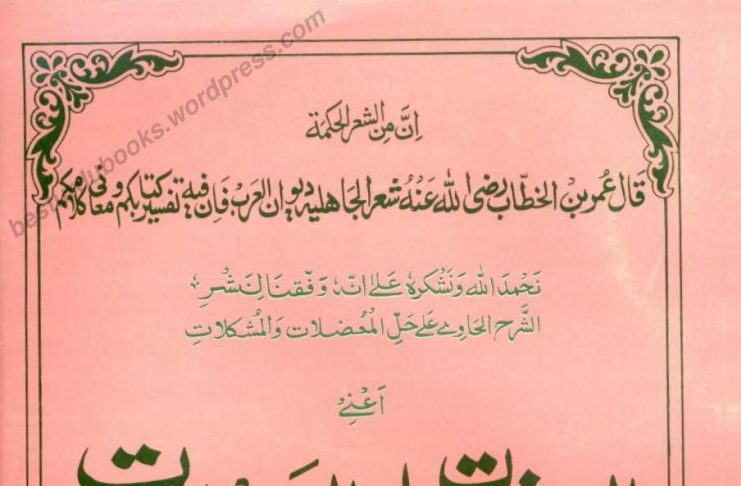 besturdubooks.wordpress.com
اِنَّ مِنَ الشعر لحكمة
قَالَ عُمَر بْنُ الخطّاب رضى اللهُ عَنْهُ شعر الجَاهليه ديوان العرب فَاِن فيه تفسير كتابكم ومعانى كلامكم
نَحْمدَ الله وَنَشْكرهٗ عَلےٰ انّہٗ وَفّقنَا لِنَشْرِ
الشَّرح الحَاوِے عَلےٰ حَلِّ الْمُعْضلات وَالمُشكلاتِ
اَعْنِے